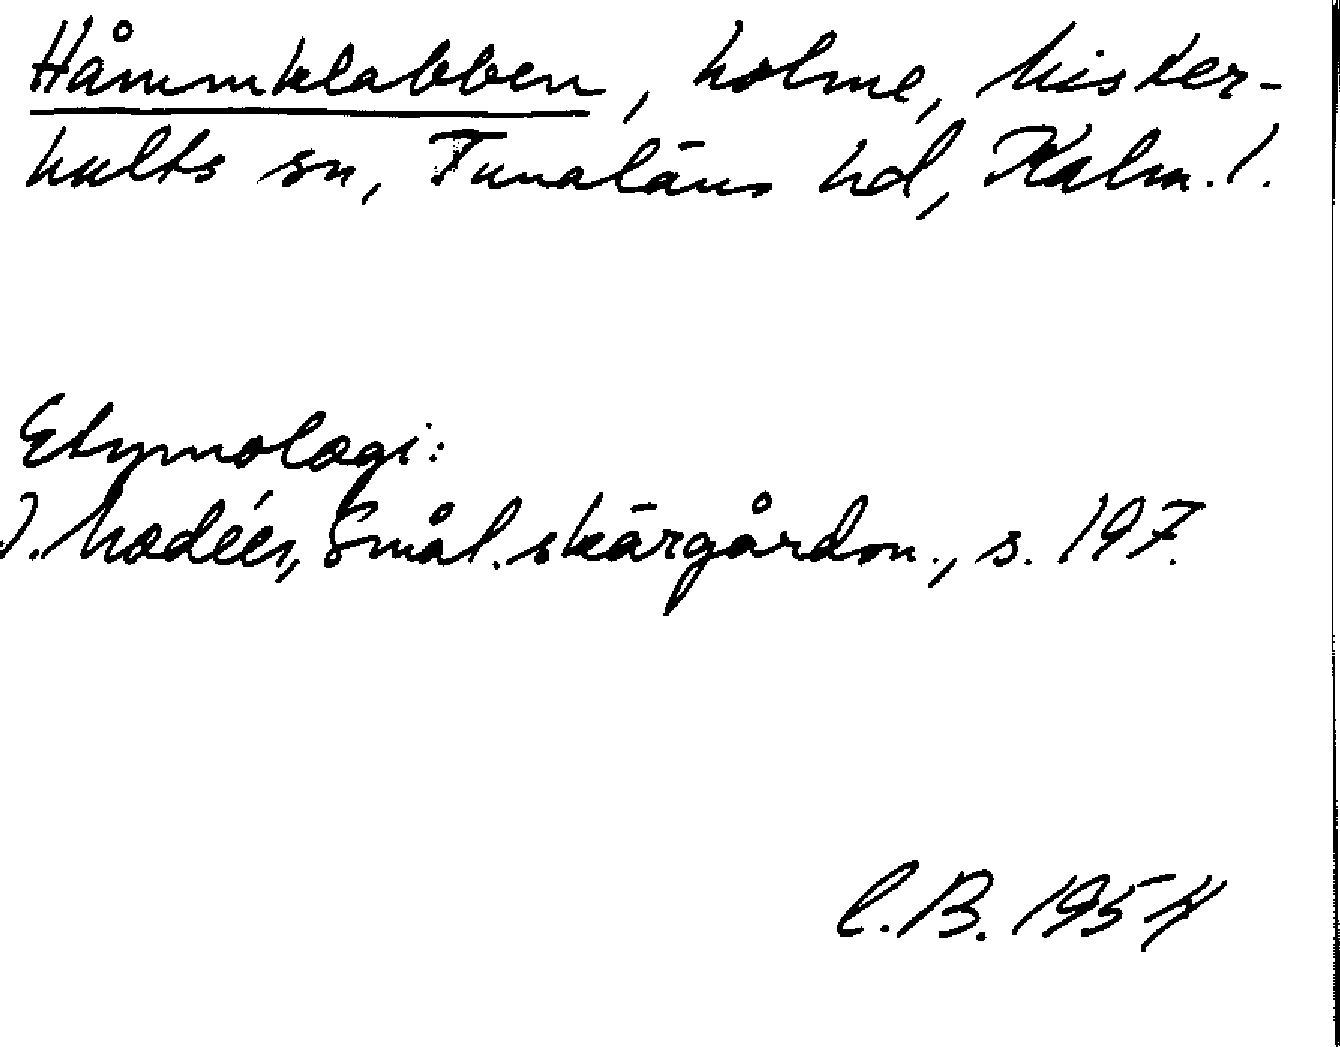 Håmmklabben, holme, Mister-
hults sn, Tunaläns hd, Kalm. l.
Etymologi:
I. Modéer, Smål. skärgårdsn., s. 197.
C.B. 1954